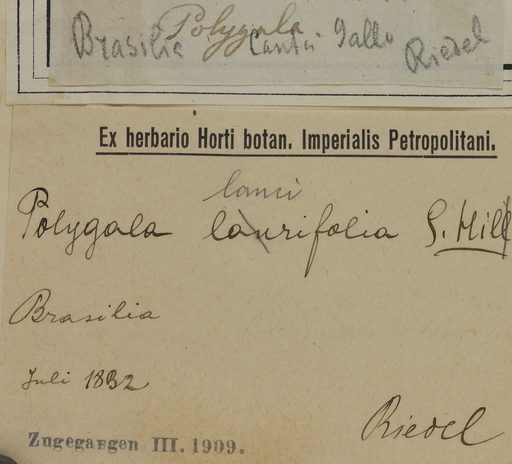 Polygala
Brasilia Riedel
Ex herbario Horti botan. Imperialis Petropolitani.
lanci
Polygala laurifolia
Brasilia
Juli 1832
Riedel
Zugegangen III. 1909.